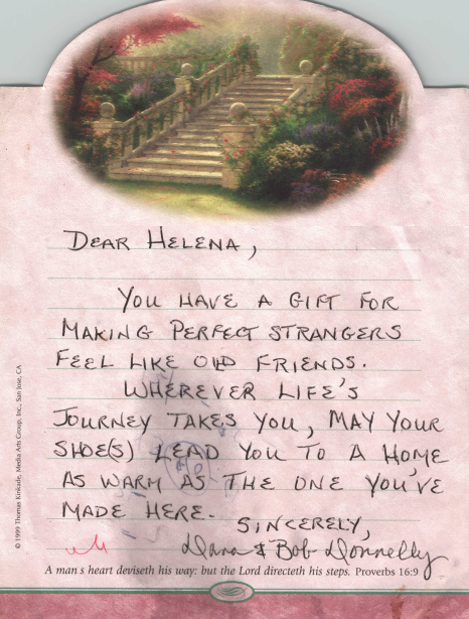 DEAR HELENA,
YOU HAVE A GIFT FOR
MAKING PERFECT STRANGERS
FEEL LIKE OLD FRIENDS.
WHEREVER LIFE'S
JOURNEY TAKES YOU, MAY YOUR
SHOE(S) LEAD YOU TO A HOME
AS WARM AS THE ONE YOU'VE
MADE HERE.
SINCERELY,
Dana & Bob Donnelly
A man s heart deviseth his way: but the Lord directeth his steps. Proverbs 16:9
© 1999 Thomas Kinkade, Media Arts Group, Inc., San Jose, CA